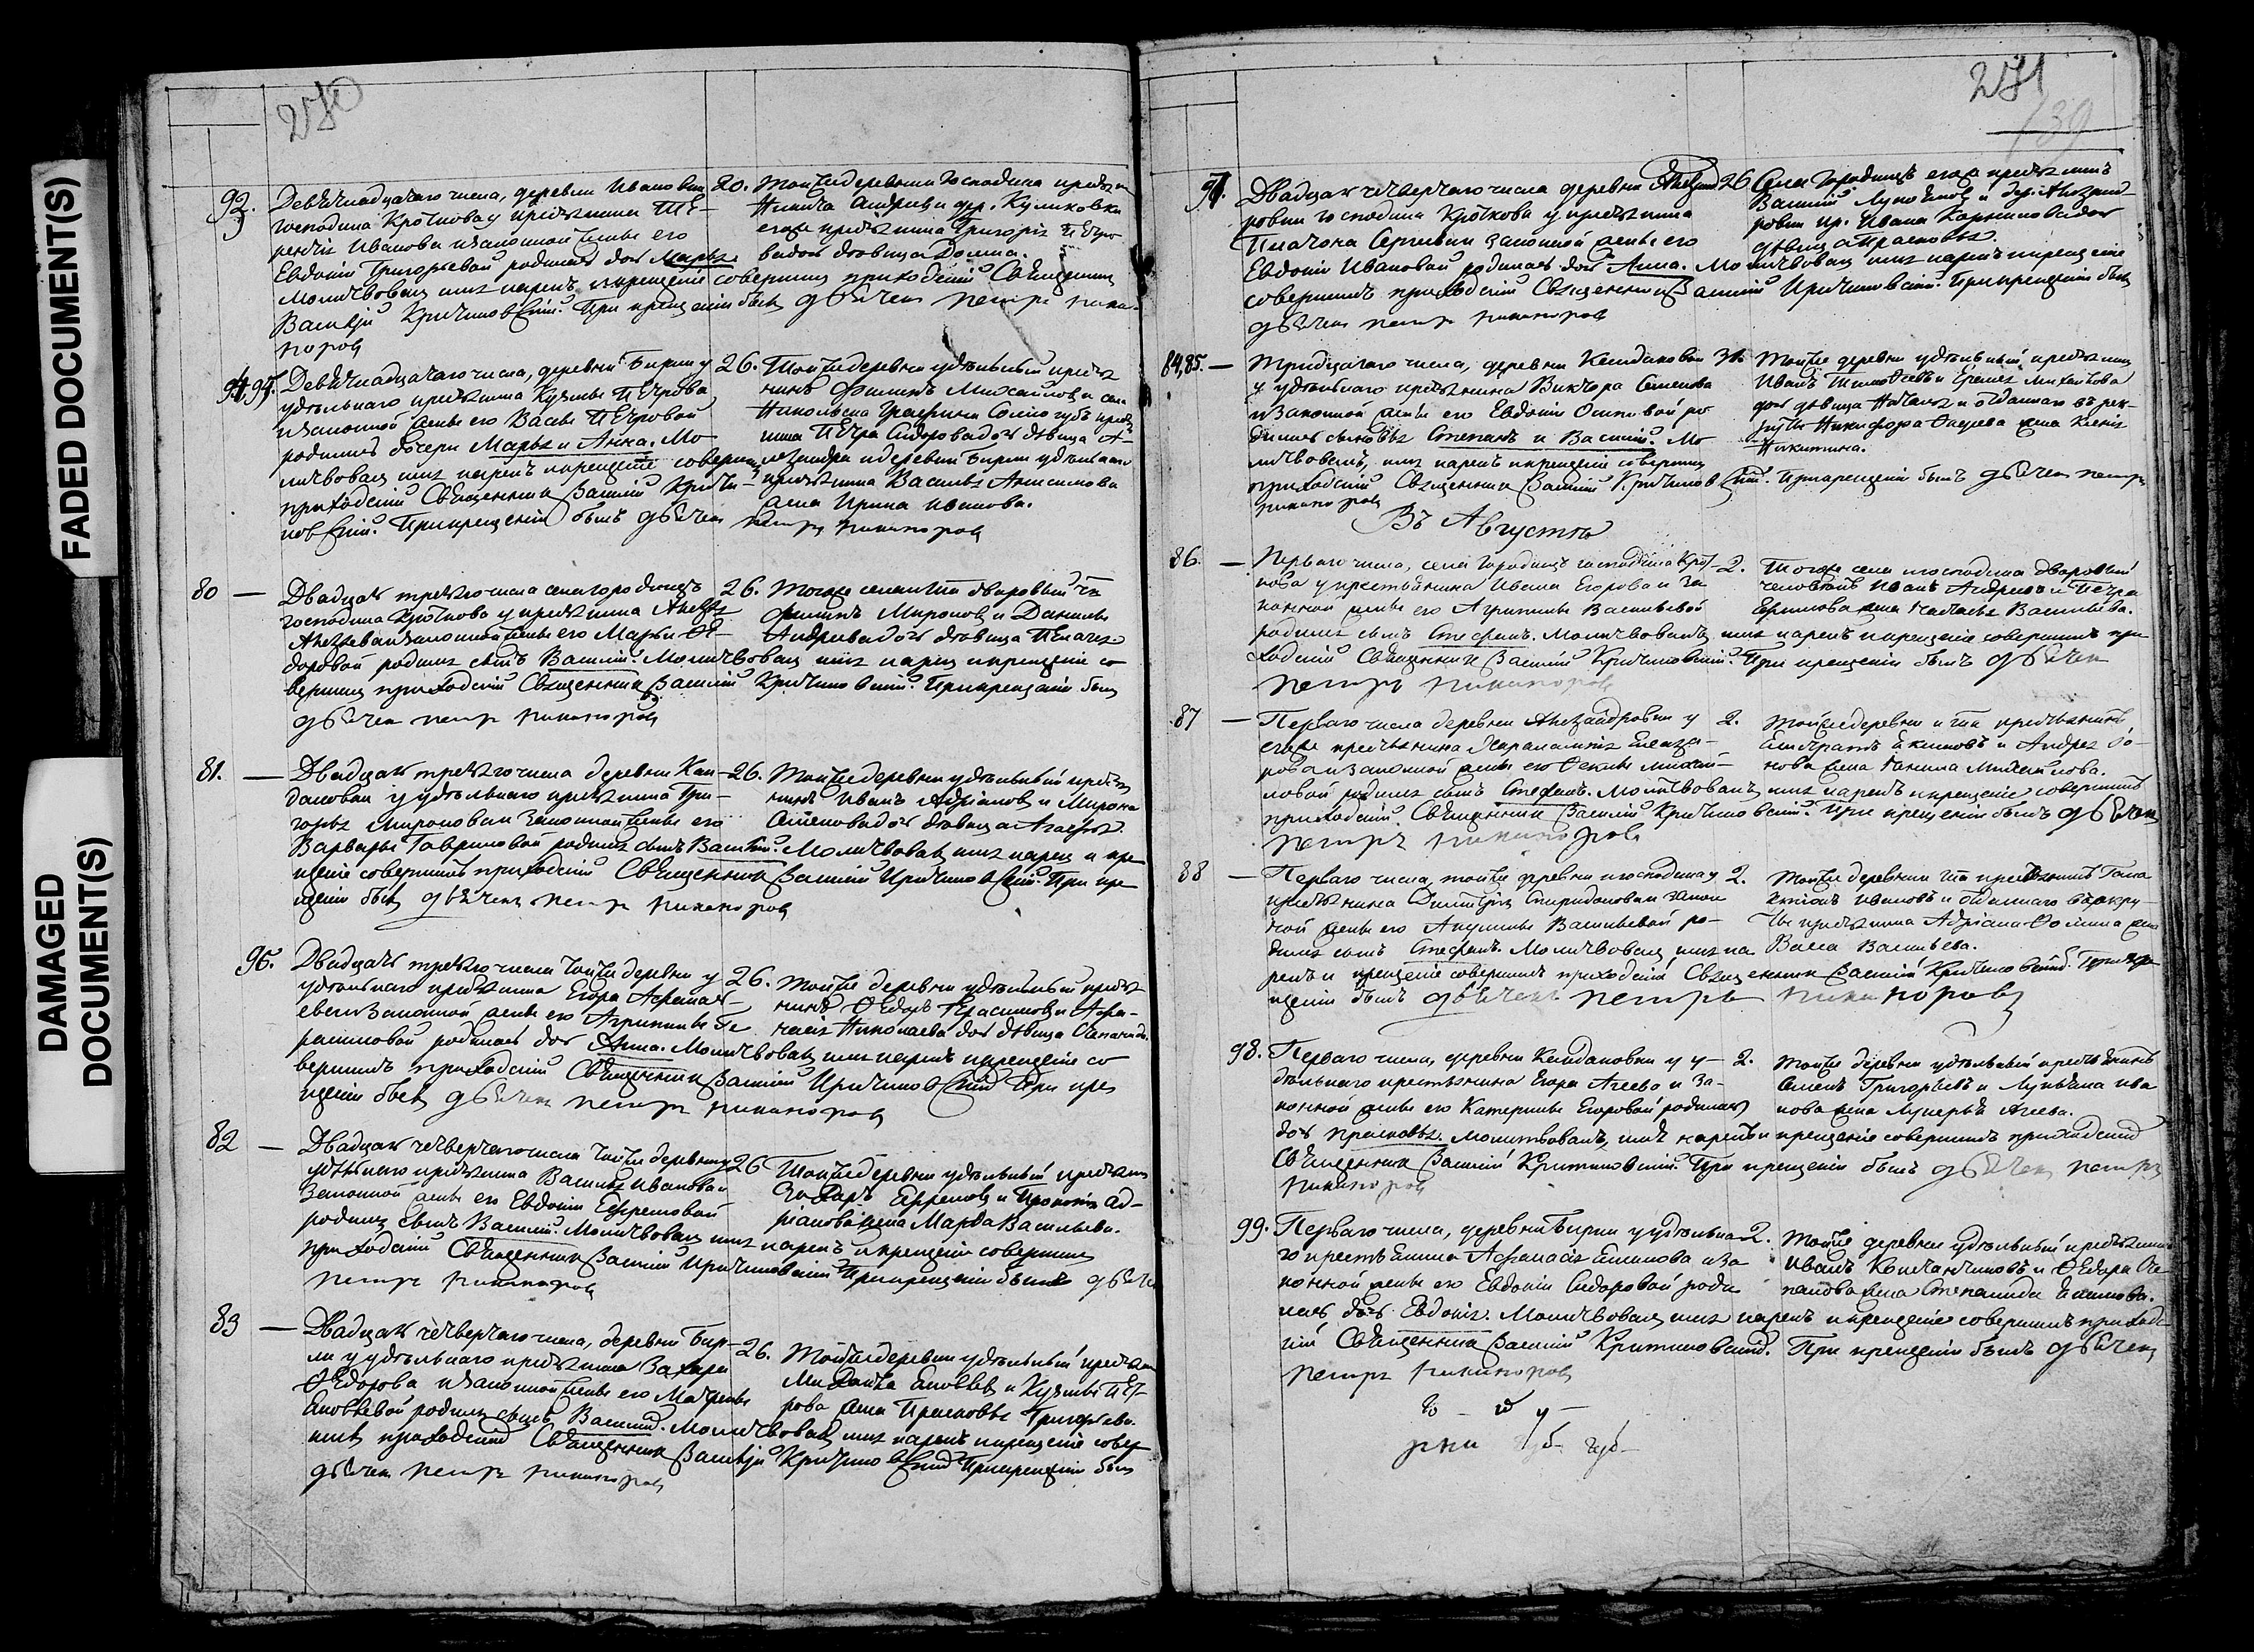 FADED DOCUMENT(S)
DAMAGED
DOCUMENT(S)
270
93. Девятнадцатаго числа, деревни Ивановки
господина Кроткова у крестьянина Те-
рентія Иванова и законной жены его
Евдокіи Григорьевой родилась дочь Марья.
Молитвовалъ имя нарекъ и крещеніе совершилъ приходскій Священникъ
Василій Кричиновскій. При крещеніи былъ дьячекъ петръ никано-
ровъ
20. Той же деревни Господина крестьян
Никита Андреевъ и дер. Куликовки
егоже крестьянина Григорія Пет
рова дочь девица Домна.
94, 95. Девятнадцатаго числа, деревни Бирли у
удѣльнаго крестьянина Кузьмы Петрова
и законной жены его Васы Петровой
родились дочери Марья и Анна. Мо-
литвовалъ имя нарекъ и крещеніе совершилъ
приходскій Священникъ Василій Кричи-
новскій. При крещеніи былъ дьячекъ петръ никаноровъ
26. Той же деревни удѣльный крестья
нинъ Филипъ Михайловъ и села
Никольска Графини крестья
нина Петра Сидорова дочь девица А-
лезандра и деревни Бирли удѣльнаго
крестьянина Василья Анисимова
жена Ирина Иванова.
80 — Двадцать третьяго числа села городищъ
господина Кроткова у крестьянина Алексѣя
Алексѣева и законной жены его Марьи Ѳе-
доровой родился сынъ Василій. Молитвовалъ имя нарекъ и крещеніе со
вершилъ приходскій Священникъ Василій Кричиновскій. При крещеніи былъ
дьячекъ петръ никаноровъ
26. Тогоже села дворовый
Филипъ Мироновъ и Данилы
Андреева дочь девица Пелагея
81. — Двадцать третьяго числа деревни Кан-
даковки у удѣльнаго крестьянина Гри-
горья Миронова и законной жены его
Варвары Гавриловой родился сынъ Василій. Молитвовалъ имя нарекъ и кре
щеніе совершилъ приходскій Священникъ Василій Кричиновскій. При кре
щеніи былъ дьячекъ петръ никаноровъ
26. Той же деревни удѣльный крестья
нинъ Иванъ Адріановъ и Мирона
Семенова дочь девица Агафья.
96. Двадцать третьяго числа той же деревни у
удѣльнаго крестьянина Егора Афанась-
ева и законной жены его Агрипины Ге
расимовой родилась дочь Анна. Молитвовалъ имя нарекъ и крещеніе со
вершилъ приходскій Священникъ Василій Кричиновскій При кре
щеніи былъ дьячекъ петръ никаноровъ
26. Той же деревни удѣльный крестья
нинъ Ѳедоръ Герасимовъ и Афа-
насія Николаева дочь девица
82 — Двадцать четвертаго числа той же деревни у
удѣльнаго крестьянина Василья Иванова и
законной жены его Евдокіи Ефремовой
родился сынъ Василій. Молитвовалъ имя нарекъ и крещеніе совершилъ
приходскій Священникъ Василій Кричиновскій При крещеніи былъ дьячекъ
петръ никаноровъ
26 Той же деревни удѣльный крестьян
Захаръ Ефремовъ и Прокопія Ад-
ріанова жена Марѳа Васильева.
83 — Двадцать четвертаго числа, деревни Бир-
ли у удѣльнаго крестьянина Захара
Ѳедорова и законной жены его Матрены
Яковлевой родился сынъ Василій. Молитвовалъ имя нарекъ и крещеніе совер
шилъ приходскій Священникъ Василій Кричиновскій При крещеніи былъ
дьячекъ петръ никаноровъ
26. Той же деревни удѣльный крестьян
Михайла Яковлевъ и Кузьмы Пет-
рова жена Прасковья Григорьева.
271
139
97. Двадцать четвертаго числа деревни Александ
ровки господина Кроткова у крестьянина
Платона Сергѣева и законной жены его
Евдокіи Ивановой родилась дочь Анна. Молитвовалъ имя нарекъ и крещеніе
совершилъ приходскій Священникъ Василій Кричиновскій. При крещеніи былъ
дьячекъ петръ никаноровъ
26 Села Городищъ егоже крестьянинъ
Василій и дер. Александ-
ровки кр. Ивана Карпилова дочь
девица Прасковья.
84, 85. — Тридцатаго числа, деревни Кандаковки
у удѣльнаго крестьянина Виктора Семенова
и законной жены его Евдокіи Осиповой ро
дились сыновья Степанъ и Василій. Мо
литвовалъ, имя нарекъ и крещеніе совершилъ
приходскій Священникъ Василій Кричиновскій. При крещеніи былъ дьячекъ петръ
никаноровъ
31. Той же деревни удѣльный крестьянинъ
Иванъ Тимоѳеевъ и Еремея Михайлова
дочь девица Наталья и отданнаго въ рек-
руты Никифора жена Ксенія
Никитина.
Въ Августѣ
86. — Перваго числа, села Городищъ господина Крот-
кова у крестьянина Ивана Егорова и за-
конной жены его Агрипины Васильевой
родился сынъ Стефанъ. Молитвовалъ имя нарекъ и крещеніе совершилъ при
ходскій Священникъ Василій Кричиновскій. При крещеніи былъ дьячекъ
петръ никаноровъ
2. Тогоже села и господина дворовый
человѣкъ Иванъ Андреевъ и Петра
Ермилова жена Наталья Васильева.
87 — Перваго числа деревни Александровки у
егоже крестьянина Харалампія Елеаза-
рова и законной жены его Ѳеклы Михай-
ловой родился сынъ Стефанъ. Молитвовалъ имя нарекъ и крещеніе совершилъ
приходскій Священникъ Василій Кричиновскій. При крещеніи былъ дьячекъ
петръ никаноровъ
2. Той же деревни и гна крестьянинъ
Екимовъ и Андрея Фо-
кова жена Татьяна Михайлова.
88 — Перваго числа, той же деревни и господина у
крестьянина Димитрія Спиридонова и закон
ной жены его Акулины Васильевой ро-
дился сынъ Стефанъ. Молитвовалъ имя на
рекъ и крещеніе совершилъ приходскій Священникъ Василій Кричиновскій. При кре
щеніи былъ дьячекъ петръ никаноровъ
2. Той же деревни гна крестьянинъ
Ивановъ и отданнаго въ рекру-
ты крестьянина Адріана Фомина жена
Васса Васильева.
98. Перваго числа, деревни Кандаковки у у-
дѣльнаго крестьянина Егора Агеева и за-
конной жены его Катерины Егоровой родилась
дочь Прасковья. Молитвовалъ, имя нарекъ и крещеніе совершилъ приходскій
Священникъ Василій Кричиновскій. При крещеніи былъ дьячекъ петръ
никаноровъ
2. Той же деревни удѣльный крестьянинъ
Семенъ Григорьевъ и Лукьяна Ива
нова жена Лукерья Агеева.
99. Перваго числа, деревни Бирли у удѣльна-
го крестьянина Афанасія Екимова и за
конной жены его Евдокіи Сидоровой роди
лась дочь Евдокія. Молитвовалъ имя нарекъ и крещеніе совершилъ приходс-
кій Священникъ Василій Кричиновскій. При крещеніи былъ дьячекъ
петръ никаноровъ
2. Той же деревни удѣльный крестьянинъ
Иванъ Константиновъ и Ѳедора Сте
панова жена Степанида Екимова.